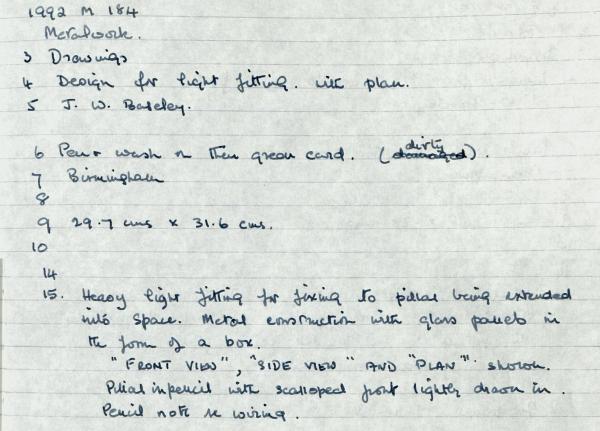 1992 M 184
Metalwork.
3 Drawings
4 Design for light fitting. with plan.
5 J. W. 
6 Pen & wash on thin green card. (dirty damaged).
7 Birmingham
8
9 29.7 cms x 31.6 cms.
10
14
15. Heavy light fitting for fixing to pillar being extended
into space. Metal construction with glass panels in
the form of a box.
"FRONT VIEW", "SIDE VIEW" AND "PLAN" shown.
Pillar in pencil with scalloped front lightly drawn in.
Pencil note re wiring.